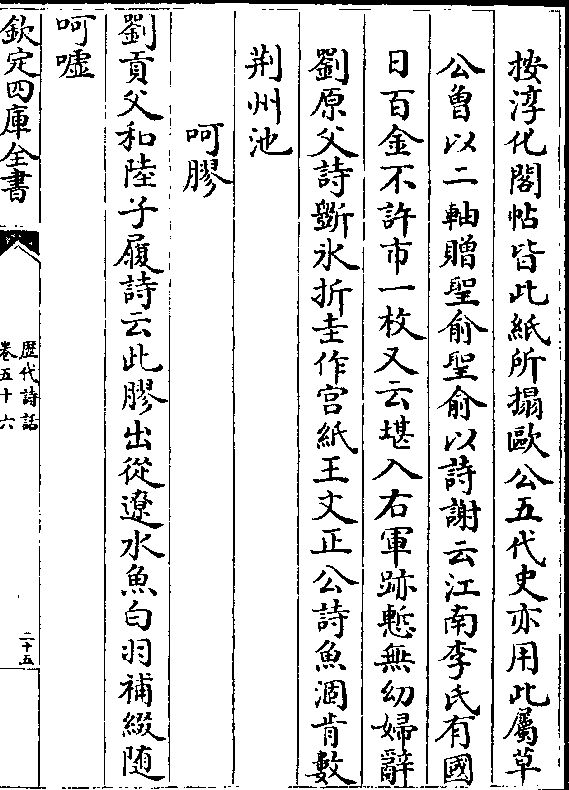 按淳化閣帖皆此紙所搨歐公五代史亦用此屬草
公曾以二軸贈聖俞聖俞以詩謝云江南李氏有國
日百金不許市一枚又云堪入右軍跡慙無幼婦辭
劉原父詩斵氷折圭作宫紙王文正公詩魚涸肯數
荆州池
呵膠
劉貢父和陸子履詩云此膠出從遼水魚白羽補綴随
呵噓
欽定四庫全書
歴代詩話
卷五十六
二十五